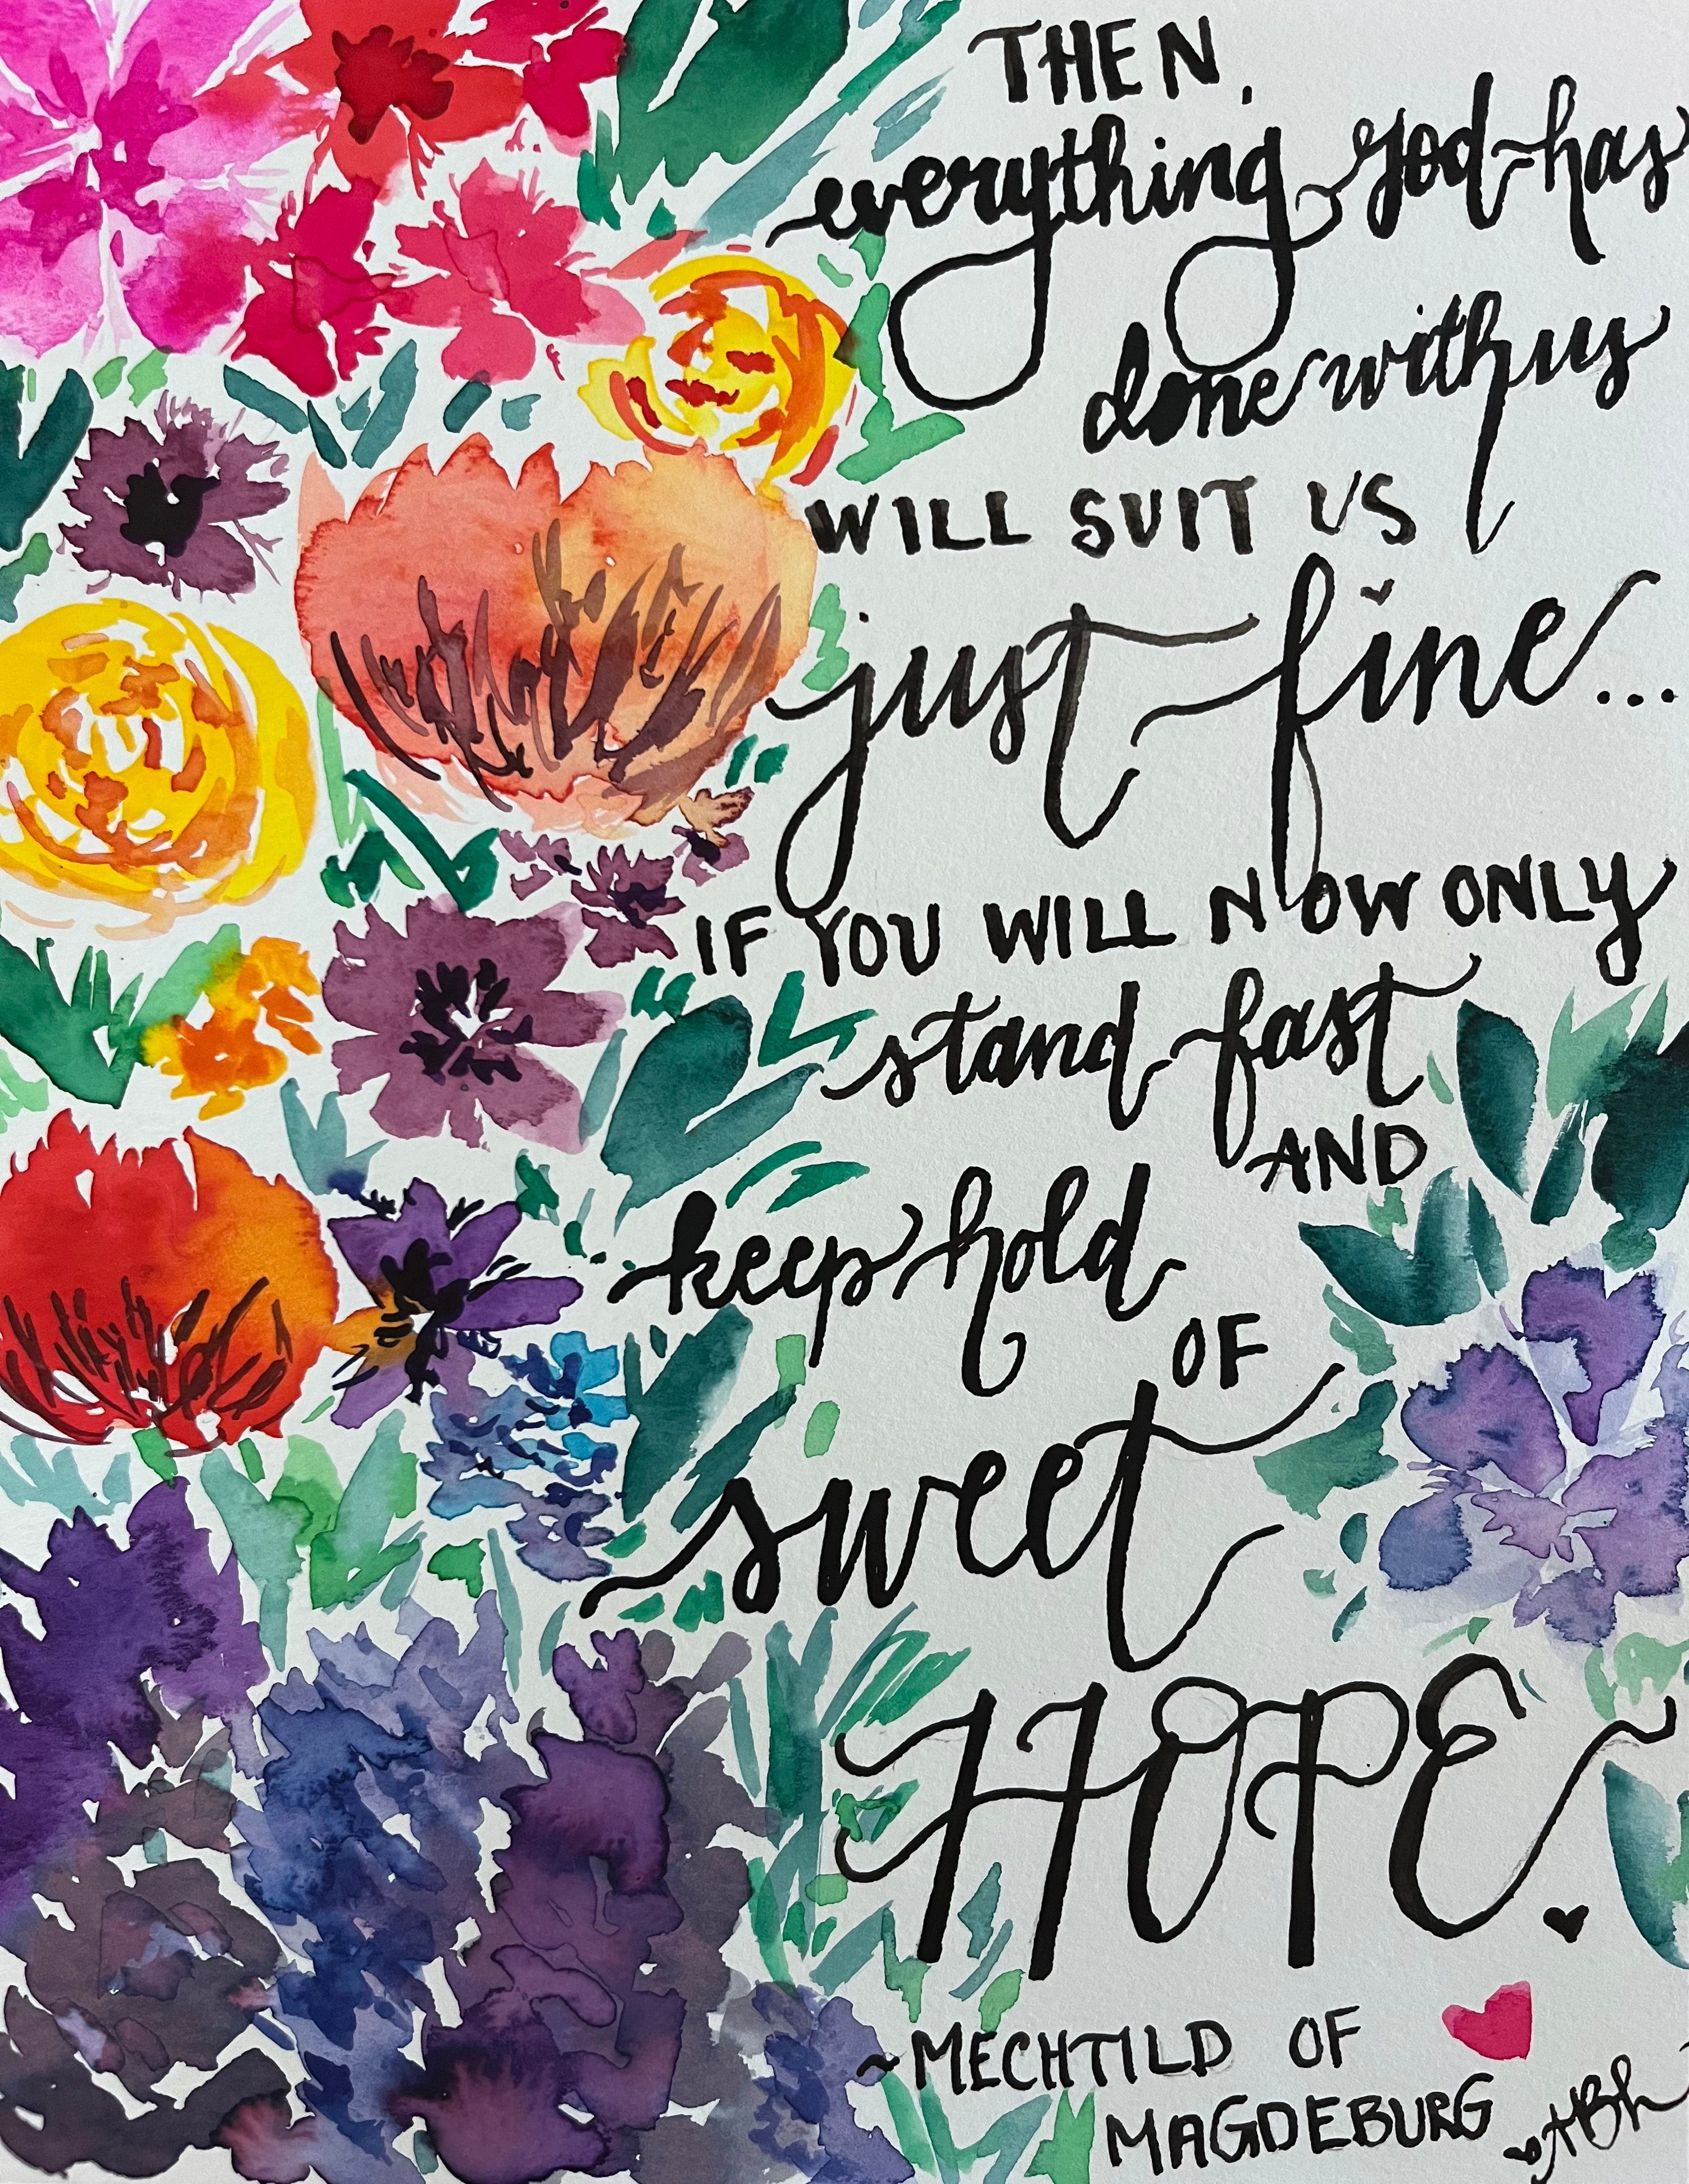 THEN,
everything god has
done with us
WILL SUIT US
just fine...
IF YOU WILL NOW ONLY
stand fast
AND
keep hold
OF
sweet
HOPE.
~MECHTILD OF
MAGDEBURG
ABh